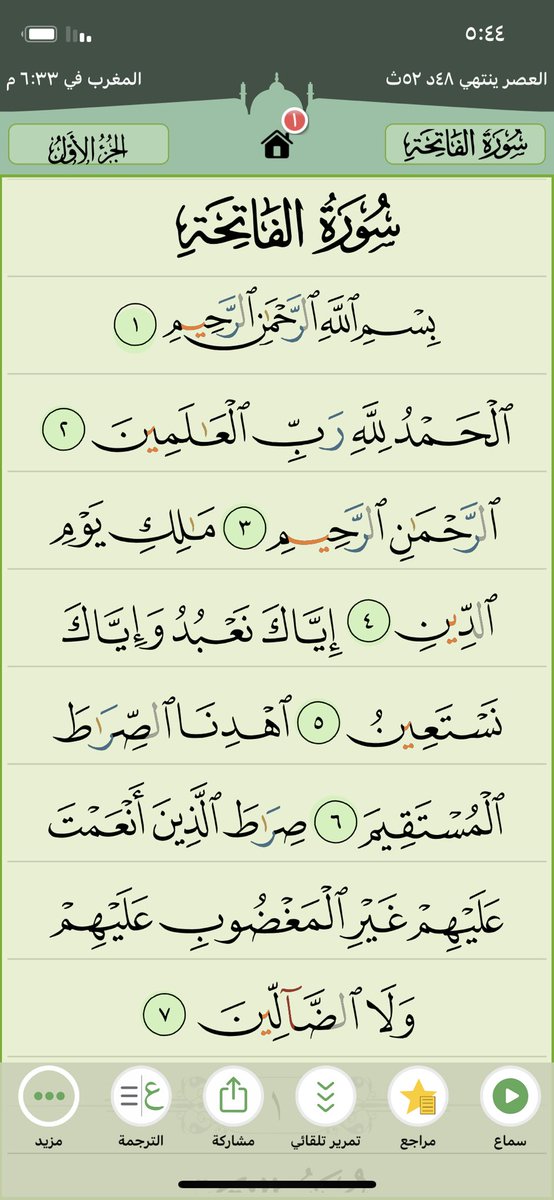 ٥:٤٤
العصر ينتهي ٤٨د ٥٢ث
المغرب في ٦:٣٣ م
١
سُورَةُ الفَاتِحَةِ
الجُزْءُ الأَوَّلُ
سُورَةُ الفَاتِحَةِ
بِسْمِ ٱللَّهِ ٱلرَّحْمَٰنِ ٱلرَّحِيمِ ١
ٱلْحَمْدُ لِلَّهِ رَبِّ ٱلْعَٰلَمِينَ ٢
ٱلرَّحْمَٰنِ ٱلرَّحِيمِ ٣ مَٰلِكِ يَوْمِ
ٱلدِّينِ ٤ إِيَّاكَ نَعْبُدُ وَإِيَّاكَ
نَسْتَعِينُ ٥ ٱهْدِنَا ٱلصِّرَٰطَ
ٱلْمُسْتَقِيمَ ٦ صِرَٰطَ ٱلَّذِينَ أَنْعَمْتَ
عَلَيْهِمْ غَيْرِ ٱلْمَغْضُوبِ عَلَيْهِمْ
وَلَا ٱلضَّآلِّينَ ٧
١
ع
سماع
مراجع
تمرير تلقائي
مشاركة
الترجمة
مزيد